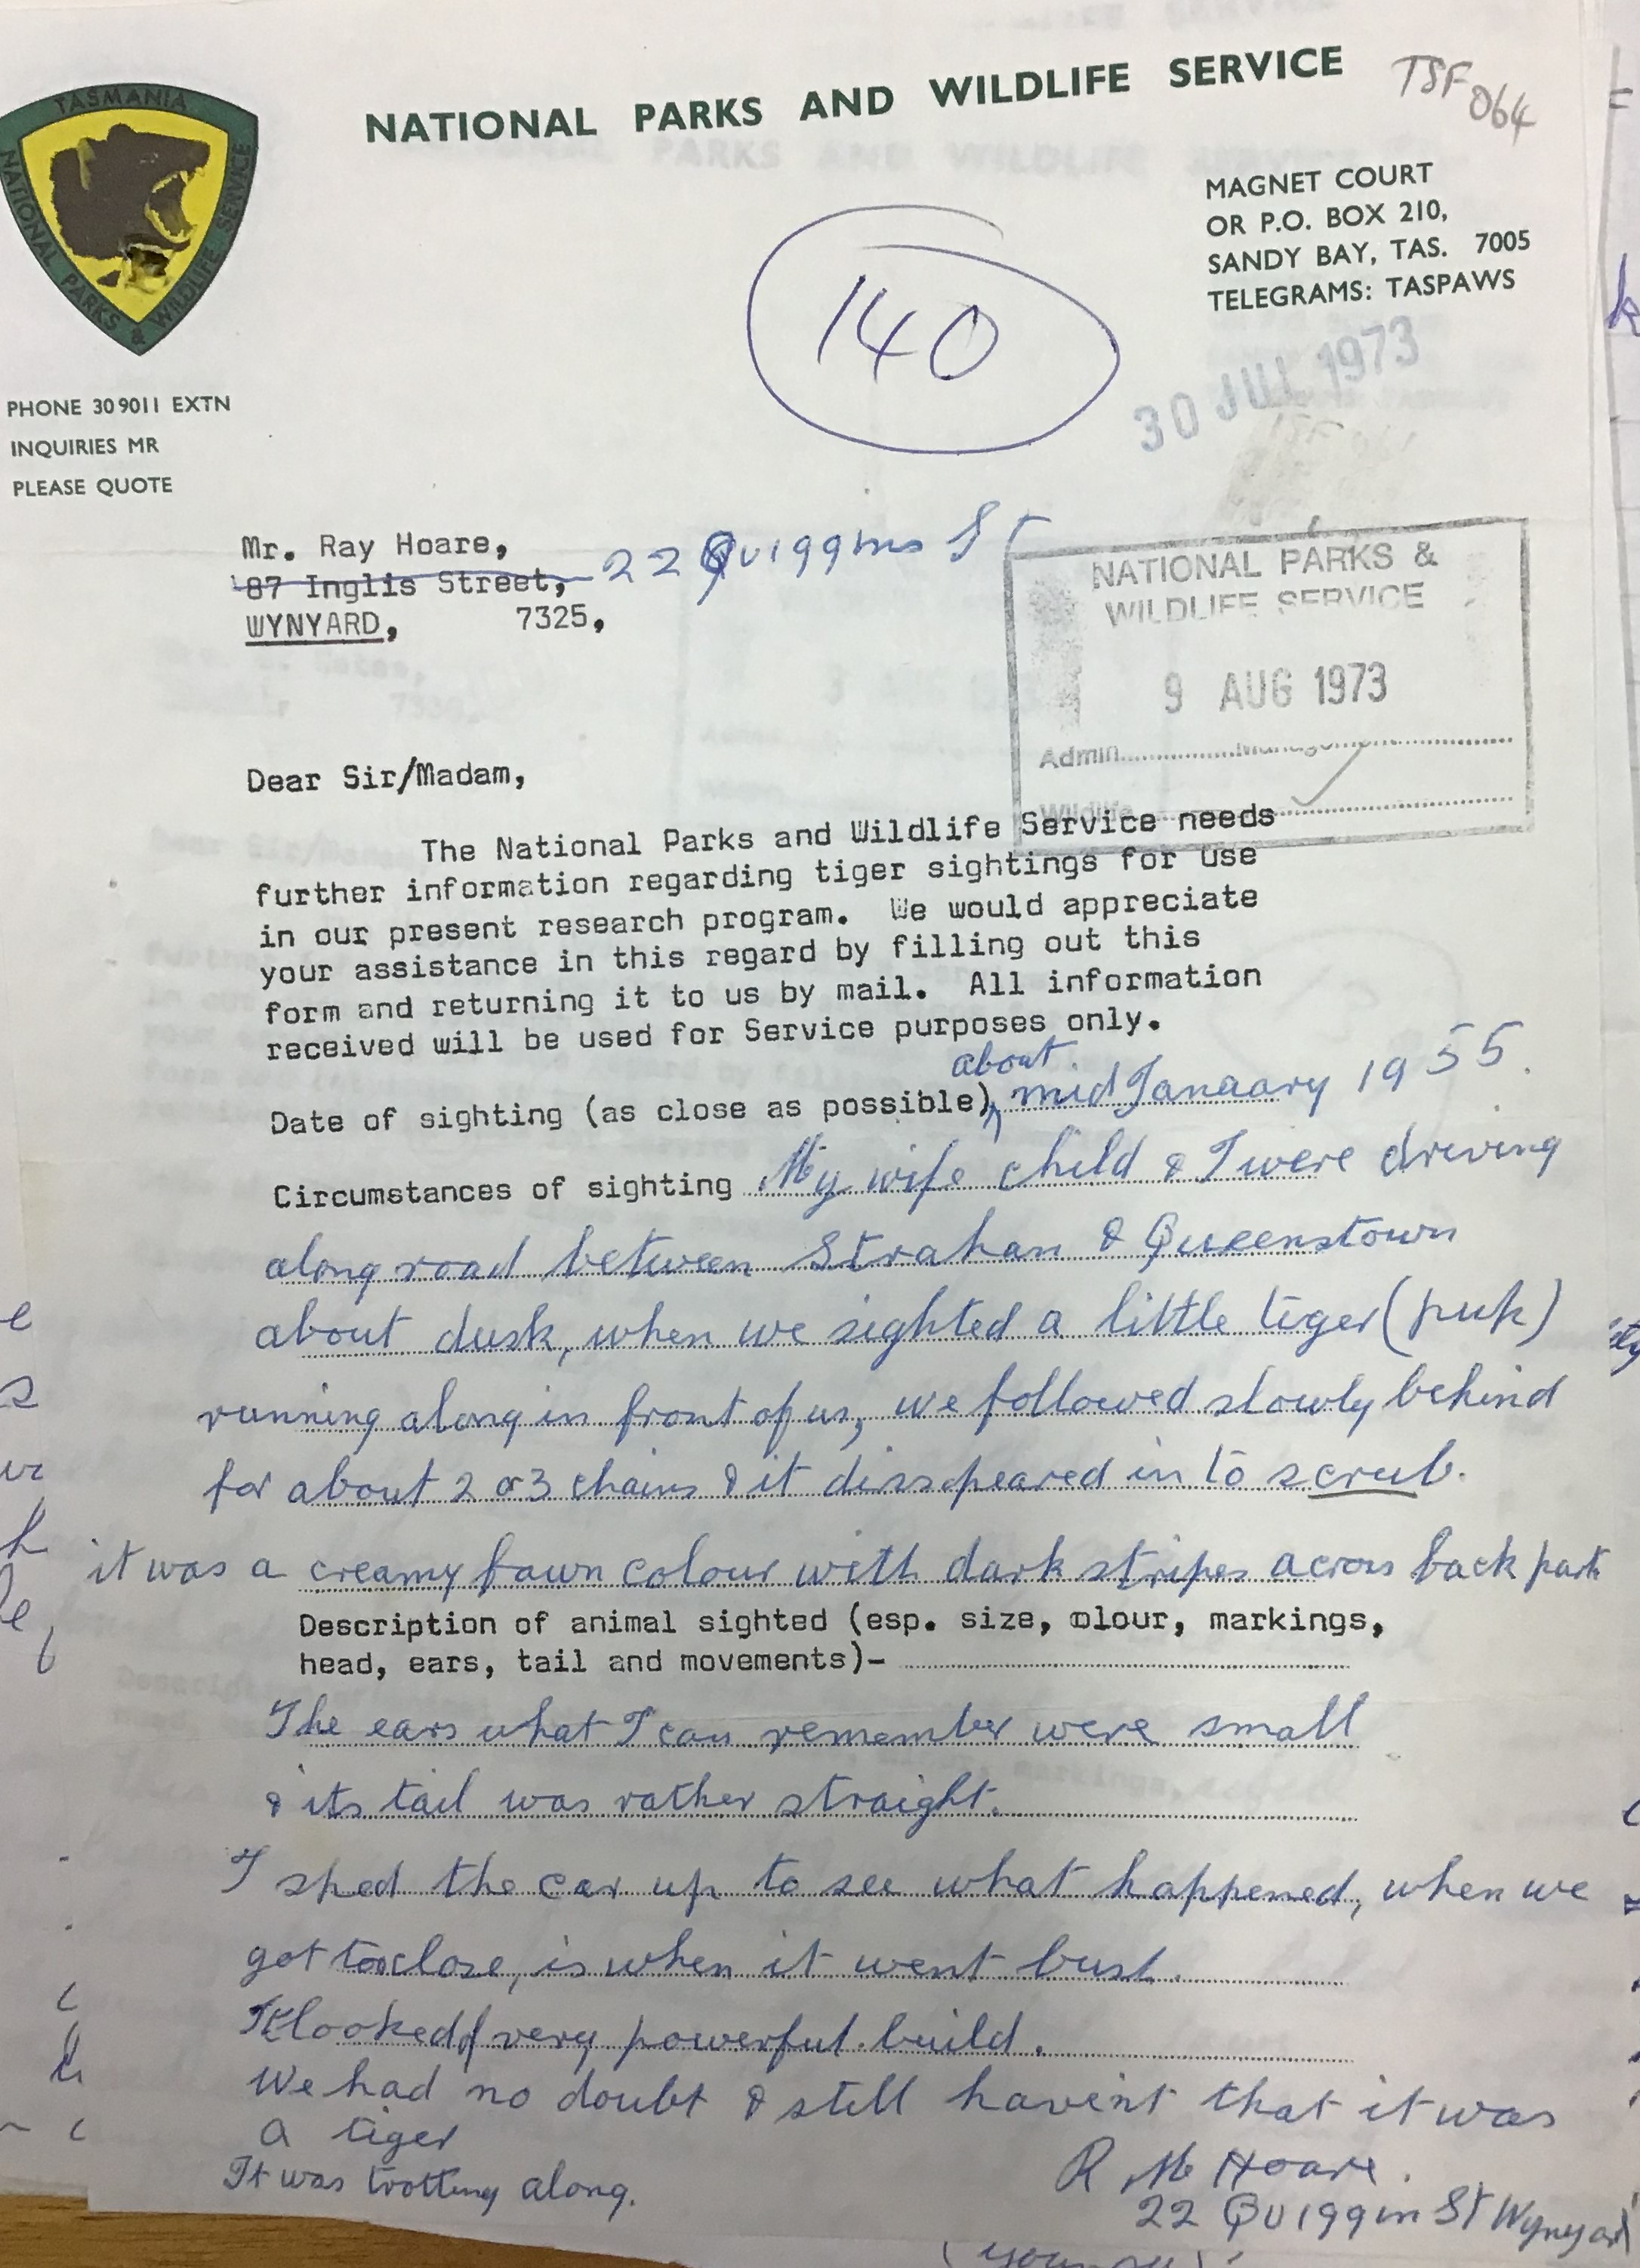 NATIONAL PARKS AND WILDLIFE SERVICE
TSF 064
TASMANIA
NATIONAL PARKS & WILDLIFE SERVICE
MAGNET COURT
OR P.O. BOX 210,
SANDY BAY, TAS. 7005
TELEGRAMS: TASPAWS
140
30 JUL 1973
PHONE 30 9011 EXTN
INQUIRIES MR
PLEASE QUOTE
Mr. Ray Hoare,
87 Inglis Street, 22 Quiggins St
WYNYARD, 7325,
NATIONAL PARKS &
WILDLIFE SERVICE
9 AUG 1973
Admin..............Management..............
Wildlife
Dear Sir/Madam,
The National Parks and Wildlife Service needs
further information regarding tiger sightings for use
in our present research program. We would appreciate
your assistance in this regard by filling out this
form and returning it to us by mail. All information
received will be used for Service purposes only.
Date of sighting (as close as possible) about mid Janaary 1955.
Circumstances of sighting My wife child & I were driving
along road between Strahan & Queenstown
about dusk, when we sighted a little tiger (pup)
running along in front of us, we followed slowly behind
for about 2 or 3 chains & it disspeared in to scrub.
it was a creamy fawn colour with dark stripes across back part
Description of animal sighted (esp. size, olour, markings,
head, ears, tail and movements)-
The ears what I can remember were small
& its tail was rather straight.
I sped the car up to see what happened, when we
got too close, is when it went bush.
It looked very powerful build.
We had no doubt & still havent that it was
a tiger
It was trotting along.
R M Hoare.
22 Quiggin St Wynyard